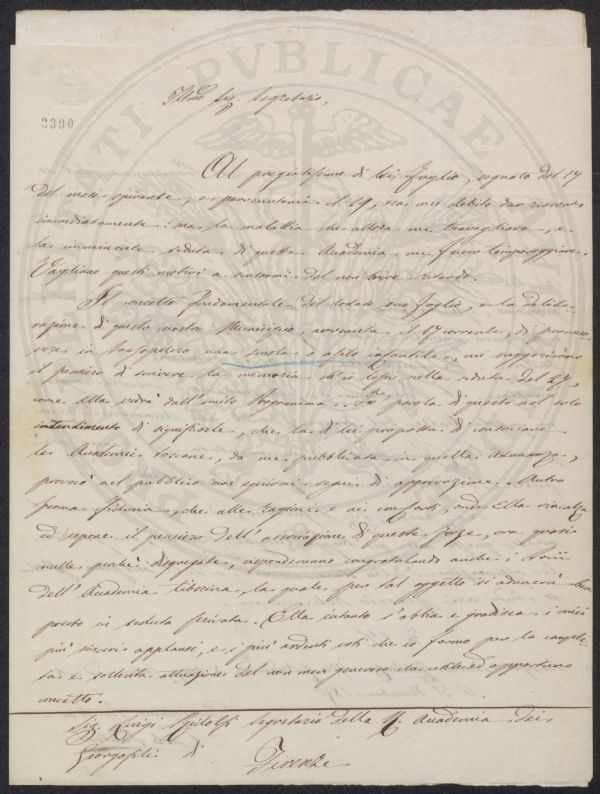 PROSPERITATI PUBLICAE
Illmo Sig. Segretario,
2390
Al pregiatissimo di lei foglio, segnato del 17
del mese spirante, e pervenutomi il 19, era mio debito dar riscontro
immediatamente: ma la malattia che allora mi travagliava, e
la imminente seduta di questa Accademia me fecero temporeggiare.
Vagliano questi motivi a scusarmi del non breve ritardo.
Il concetto fondamentale del lodato suo foglio, e la delibe-
razione di questo nostro Municipio, avvenuta il 17 corrente, di promuo-
vere in Sansepolcro una scuola o asilo infantile, mi suggerirono
il pensiero di scrivere la memoria ch'io lessi nella seduta del 27,
come Ella vedrà dall'unito Programma. Fo parola di questo nel solo
intendimento di significarle, che la di lei proposta di consociare
le Accademie toscane, da me pubblicata in quella Adunanza,
provocò nel pubblico non equivoci segni di approvazione. Nutro
ferma fiducia, che alle ragioni e ai conforti, onde Ella rincalza
ed espone il pensiero dell'associazione di queste forze, ora quasi
nulle perché disgregate, risponderanno congratulando anche i Socii
dell'Accademia tiberina, la quale per tal oggetto si adunerà ben
presto in seduta privata. Ella intanto s'abbia e gradisca i miei
più sinceri applausi, e i più ardenti voti che io formo per la comple-
ta e sollecita attuazione del non men generoso che utile ed opportuno
concetto.
Sig. Luigi Ridolfi Segretario della R. Accademia dei
Georgofili di Firenze